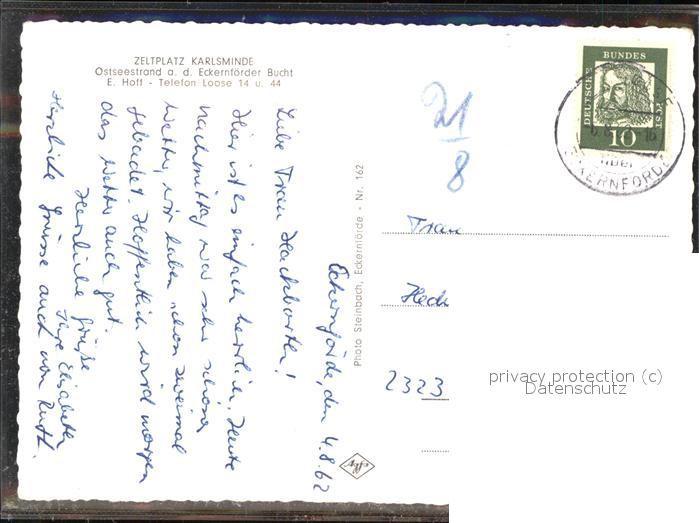 ZELTPLATZ KARLSMINDE
Ostseestrand a. d. Eckernförder Bucht
E. Hoff - Telefon Loose 14 u. 44
Eckernförde, den 4.8.62
Liebe Frau
Hier ist es einfach herrlich. Heute
Nachmittag war sehr schönes
Wetter, wir haben schon zweimal
gebadet. Hoffentlich wird morgen
das Wetter auch gut.
Herzliche Grüße
Ihre Elisabeth
Herzliche Grüsse auch von Ruth.
Photo Steinbach, Eckernförde - Nr. 162
21
8
DEUTSCHE BUNDESPOST
10
über
ECKERNFÖRDE
Frau
Hed
2323
privacy protection (c)
Datenschutz